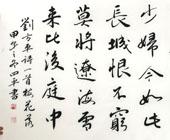 少婦今如此
長城恨不窮
莫將遼海雪
來比後庭中
劉方平詩一首梅花落
甲午之冬四平書